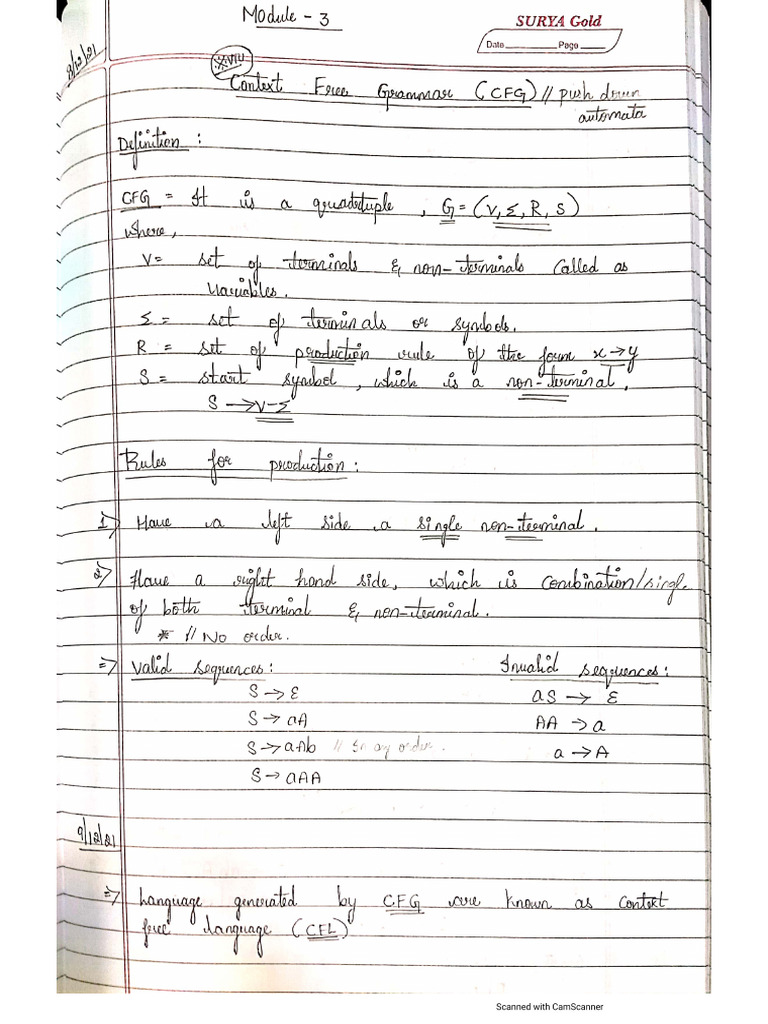 Module - 3
SURYA Gold
Date Page
8/12/21
※ VTU
Context Free Grammar (CFG) // push down
automata
Definition :
CFG = It is a quadruple , G = (V, Σ, R, S)
where,
V = set of terminals & non-terminals called as
variables.
Σ = set of terminals or symbols.
R = set of production rule of the form x → y
S = start symbol , which is a non-terminal.
S → V-Σ
Rules for production :
1) Have a left side a single non-terminal .
2) Have a right hand side, which is combination/single
of both terminal & non-terminal.
* // No order.
⇒ Valid sequences : Invalid sequences :
S → ε aS → ε
S → aA AA → a
S → aAb // In any order. a → A
S → aAA
9/12/21
⇒ Language generated by CFG are known as context
free language (CFL)
Scanned with CamScanner